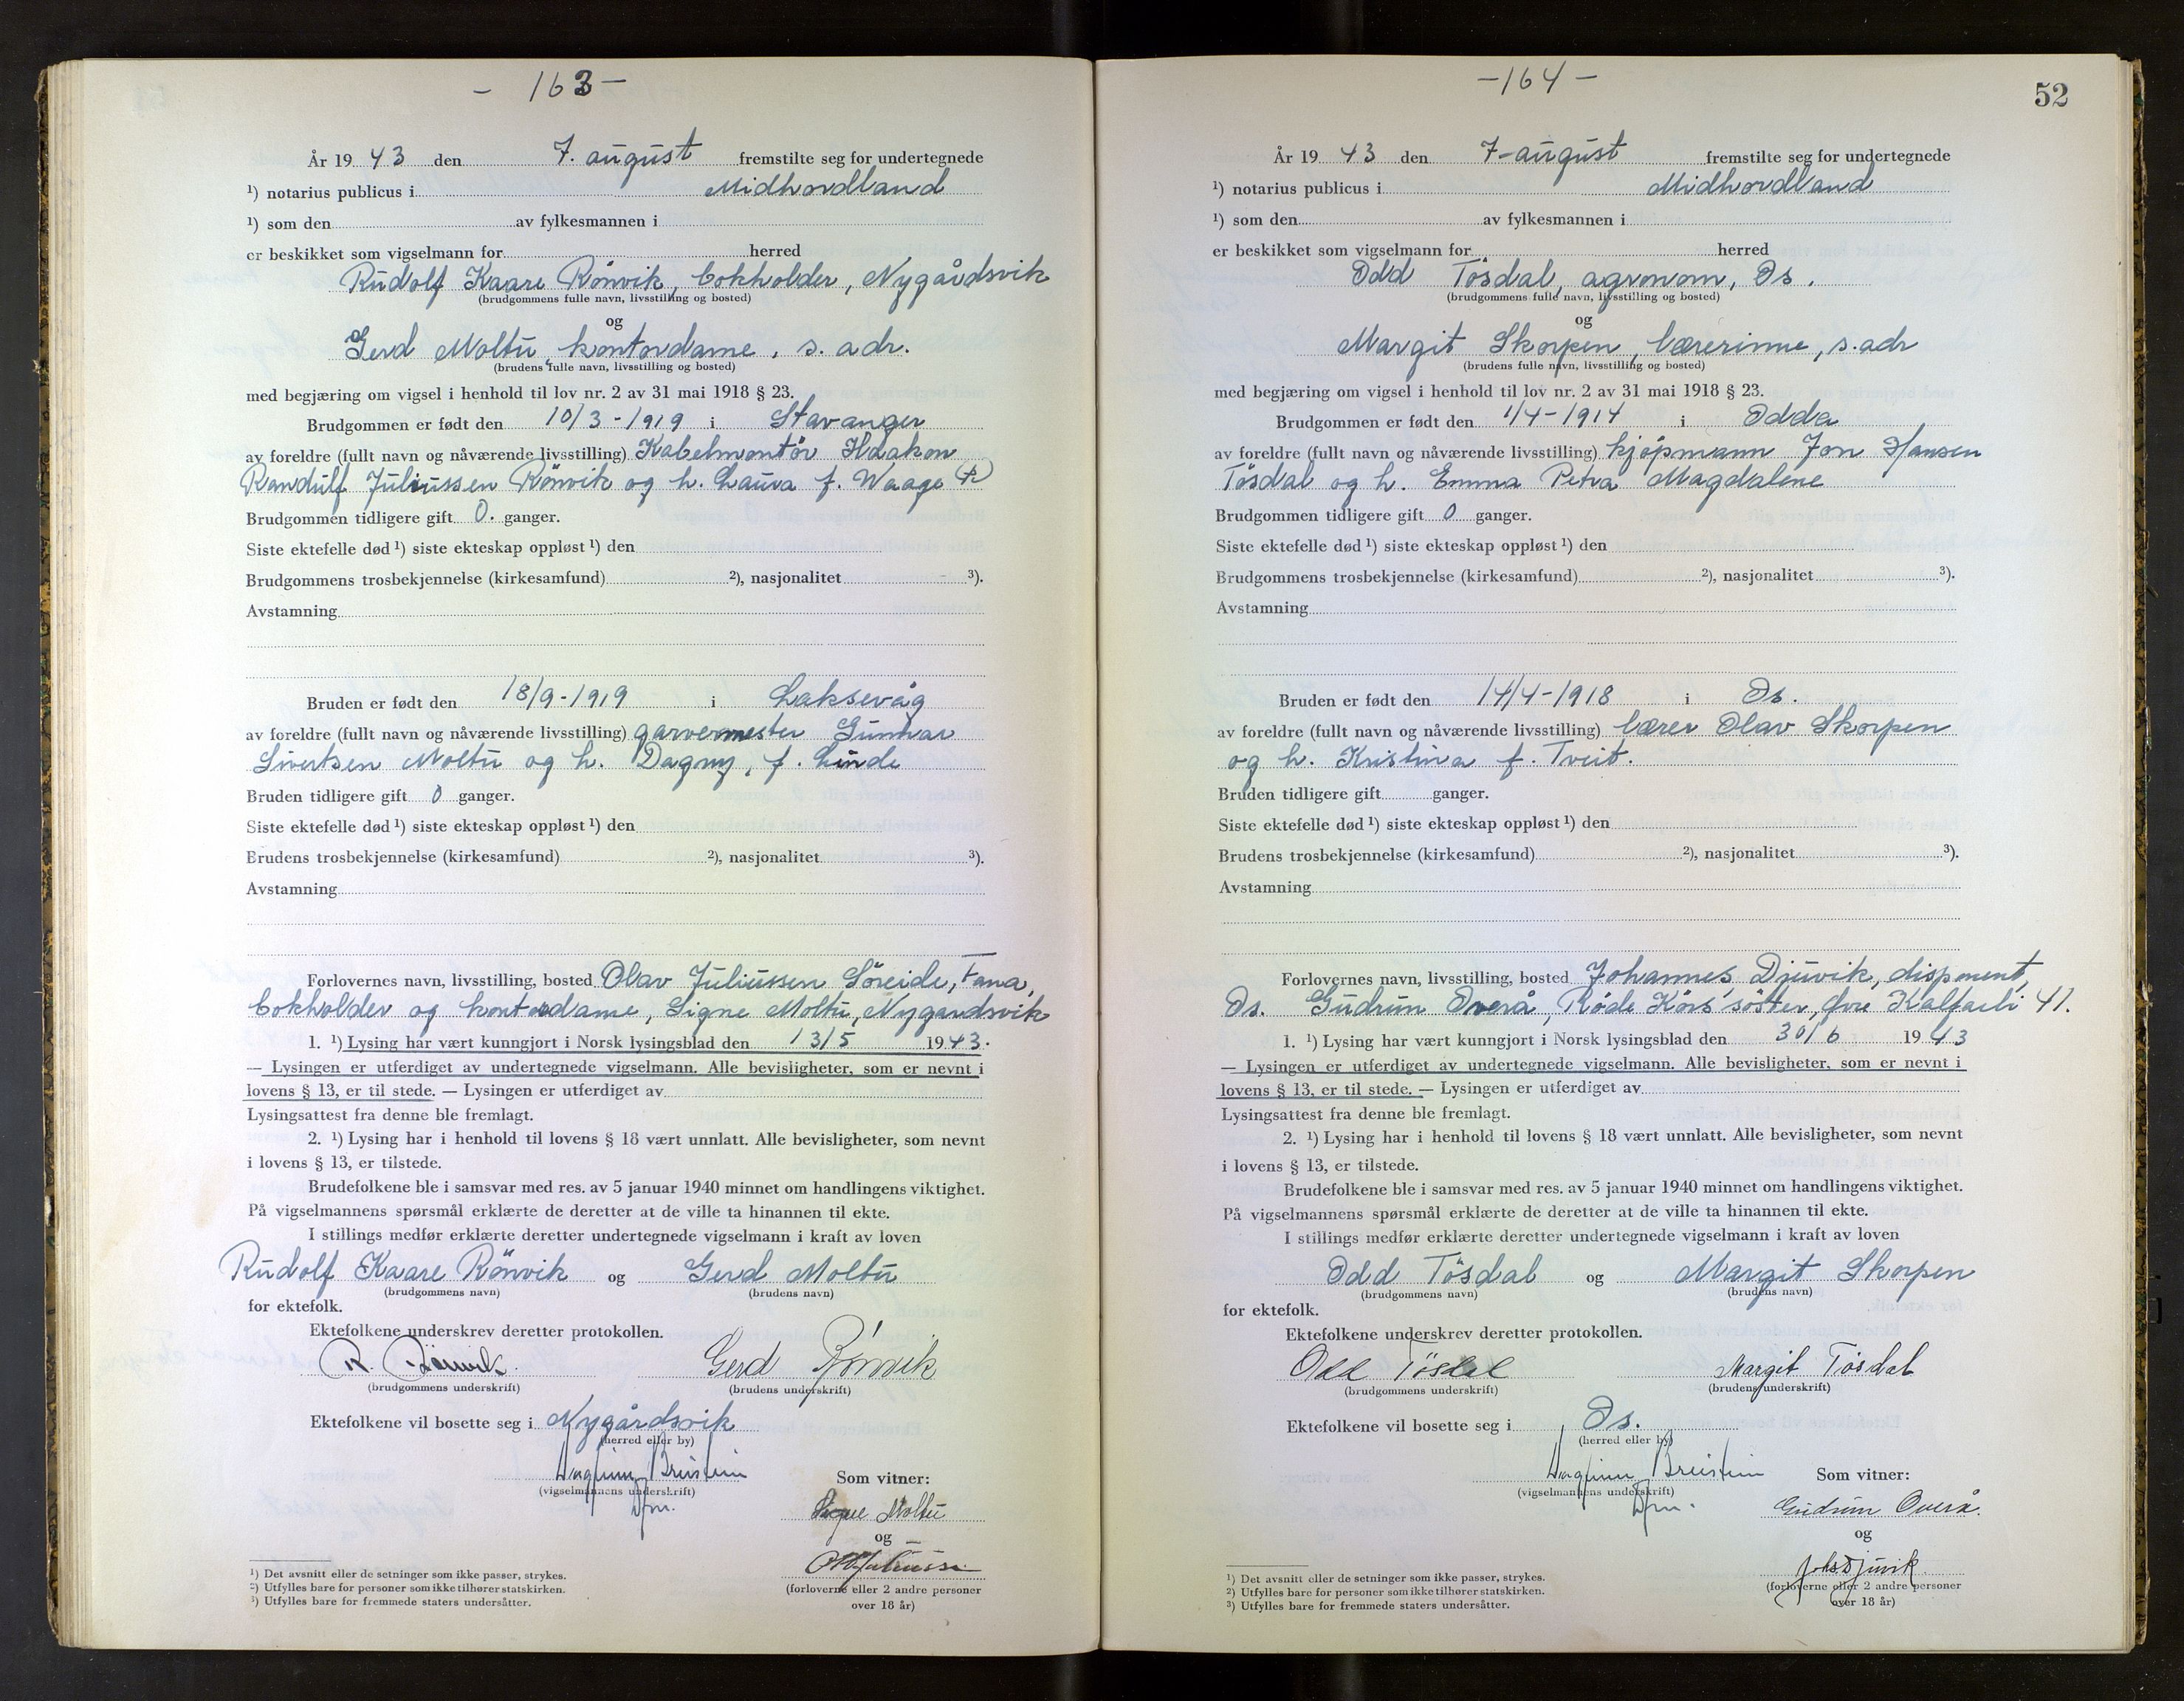 - 163 -
År 19 43 den 7. august fremstilte seg for undertegnede
¹) notarius publicus i Midhordland
¹) som den av fylkesmannen i
er beskikket som vigselmann for herred
Rudolf Kaare Rönvik, bokholder, Nygårdsvik
(brudgommens fulle navn, livsstilling og bosted)
og
Gerd Moltu, kontordame, s. adr.
(brudens fulle navn, livsstilling og bosted)
med begjæring om vigsel i henhold til lov nr. 2 av 31 mai 1918 § 23.
Brudgommen er født den 10/3 - 1919 i Stavanger
av foreldre (fullt navn og nåværende livsstilling) Kabelmontör Haakon
Randulf Juliussen Rönvik og h. Laura f. Waage
Brudgommen tidligere gift 0. ganger.
Siste ektefelle død ¹) siste ekteskap oppløst ¹) den
Brudgommens trosbekjennelse (kirkesamfund) ²), nasjonalitet ³).
Avstamning
Bruden er født den 18/9 - 1919 i Laksevåg
av foreldre (fullt navn og nåværende livsstilling) garvermester Gunnar
Sivertsen Moltu og h. Dagny, f. Linde
Bruden tidligere gift 0 ganger.
Siste ektefelle død ¹) siste ekteskap oppløst ¹) den
Brudens trosbekjennelse (kirkesamfund) ²), nasjonalitet ³).
Avstamning
Forlovernes navn, livsstilling, bosted Olav Juliussen Söreide, Fana,
bokholder og kontordame, Signe Moltu, Nygardsvik
1. ¹) Lysing har vært kunngjort i Norsk lysingsblad den 13/5 1943.
— Lysingen er utferdiget av undertegnede vigselmann. Alle bevisligheter, som er nevnt i
lovens § 13, er til stede. — Lysingen er utferdiget av
Lysingsattest fra denne ble fremlagt.
2. ¹) Lysing har i henhold til lovens § 18 vært unnlatt. Alle bevisligheter, som nevnt
i lovens § 13, er tilstede.
Brudefolkene ble i samsvar med res. av 5 januar 1940 minnet om handlingens viktighet.
På vigselmannens spørsmål erklærte de deretter at de ville ta hinannen til ekte.
I stillings medfør erklærte deretter undertegnede vigselmann i kraft av loven
Rudolf Kaare Rönvik og Gerd Moltu
(brudgommens navn) (brudens navn)
for ektefolk.
Ektefolkene underskrev deretter protokollen.
R. Rönvik. Gerd Rönvik
(brudgommens underskrift) (brudens underskrift)
Ektefolkene vil bosette seg i Nygårdsvik
(herred eller by)
Dagfinn Breistein
(vigselmannens underskrift)
Dfm.
Som vitner:
Signe Moltu
og
(forloverne eller 2 andre personer
over 18 år)
¹) Det avsnitt eller de setninger som ikke passer, strykes.
²) Utfylles bare for personer som ikke tilhører statskirken.
³) Utfylles bare for fremmede staters undersåtter.
- 164 -
52
År 19 43 den 7-august fremstilte seg for undertegnede
¹) notarius publicus i Midhordland
¹) som den av fylkesmannen i
er beskikket som vigselmann for herred
Odd Tösdal, agronom, Os.
(brudgommens fulle navn, livsstilling og bosted)
og
Margit Skorpen, lærerinne, s. adr
(brudens fulle navn, livsstilling og bosted)
med begjæring om vigsel i henhold til lov nr. 2 av 31 mai 1918 § 23.
Brudgommen er født den 1/4 - 1914 i Odda
av foreldre (fullt navn og nåværende livsstilling) kjöpmann Jon Hansen
Tösdal og h. Emma Petra Magdalene
Brudgommen tidligere gift 0 ganger.
Siste ektefelle død ¹) siste ekteskap oppløst ¹) den
Brudgommens trosbekjennelse (kirkesamfund) ²), nasjonalitet ³).
Avstamning
Bruden er født den 14/4 - 1918 i Os.
av foreldre (fullt navn og nåværende livsstilling) lærer Olav Skorpen
og h. Kristina f. Tveit.
Bruden tidligere gift ganger.
Siste ektefelle død ¹) siste ekteskap oppløst ¹) den
Brudens trosbekjennelse (kirkesamfund) ²), nasjonalitet ³).
Avstamning
Forlovernes navn, livsstilling, bosted Johannes Djuvik, disponent,
Os. Gudrun Overå, Röde Kors' söster, övre Kalfarli 41.
1. ¹) Lysing har vært kunngjort i Norsk lysingsblad den 30/6 1943
— Lysingen er utferdiget av undertegnede vigselmann. Alle bevisligheter, som er nevnt i
lovens § 13, er til stede. — Lysingen er utferdiget av
Lysingsattest fra denne ble fremlagt.
2. ¹) Lysing har i henhold til lovens § 18 vært unnlatt. Alle bevisligheter, som nevnt
i lovens § 13, er tilstede.
Brudefolkene ble i samsvar med res. av 5 januar 1940 minnet om handlingens viktighet.
På vigselmannens spørsmål erklærte de deretter at de ville ta hinannen til ekte.
I stillings medfør erklærte deretter undertegnede vigselmann i kraft av loven
Odd Tösdal og Margit Skorpen
(brudgommens navn) (brudens navn)
for ektefolk.
Ektefolkene underskrev deretter protokollen.
Odd Tösdal Margit Tösdal
(brudgommens underskrift) (brudens underskrift)
Ektefolkene vil bosette seg i Os.
(herred eller by)
Dagfinn Breistein
(vigselmannens underskrift)
Dfm.
Som vitner:
Gudrun Overå.
og
Johs Djuvik
(forloverne eller 2 andre personer
over 18 år)
¹) Det avsnitt eller de setninger som ikke passer, strykes.
²) Utfylles bare for personer som ikke tilhører statskirken.
³) Utfylles bare for fremmede staters undersåtter.